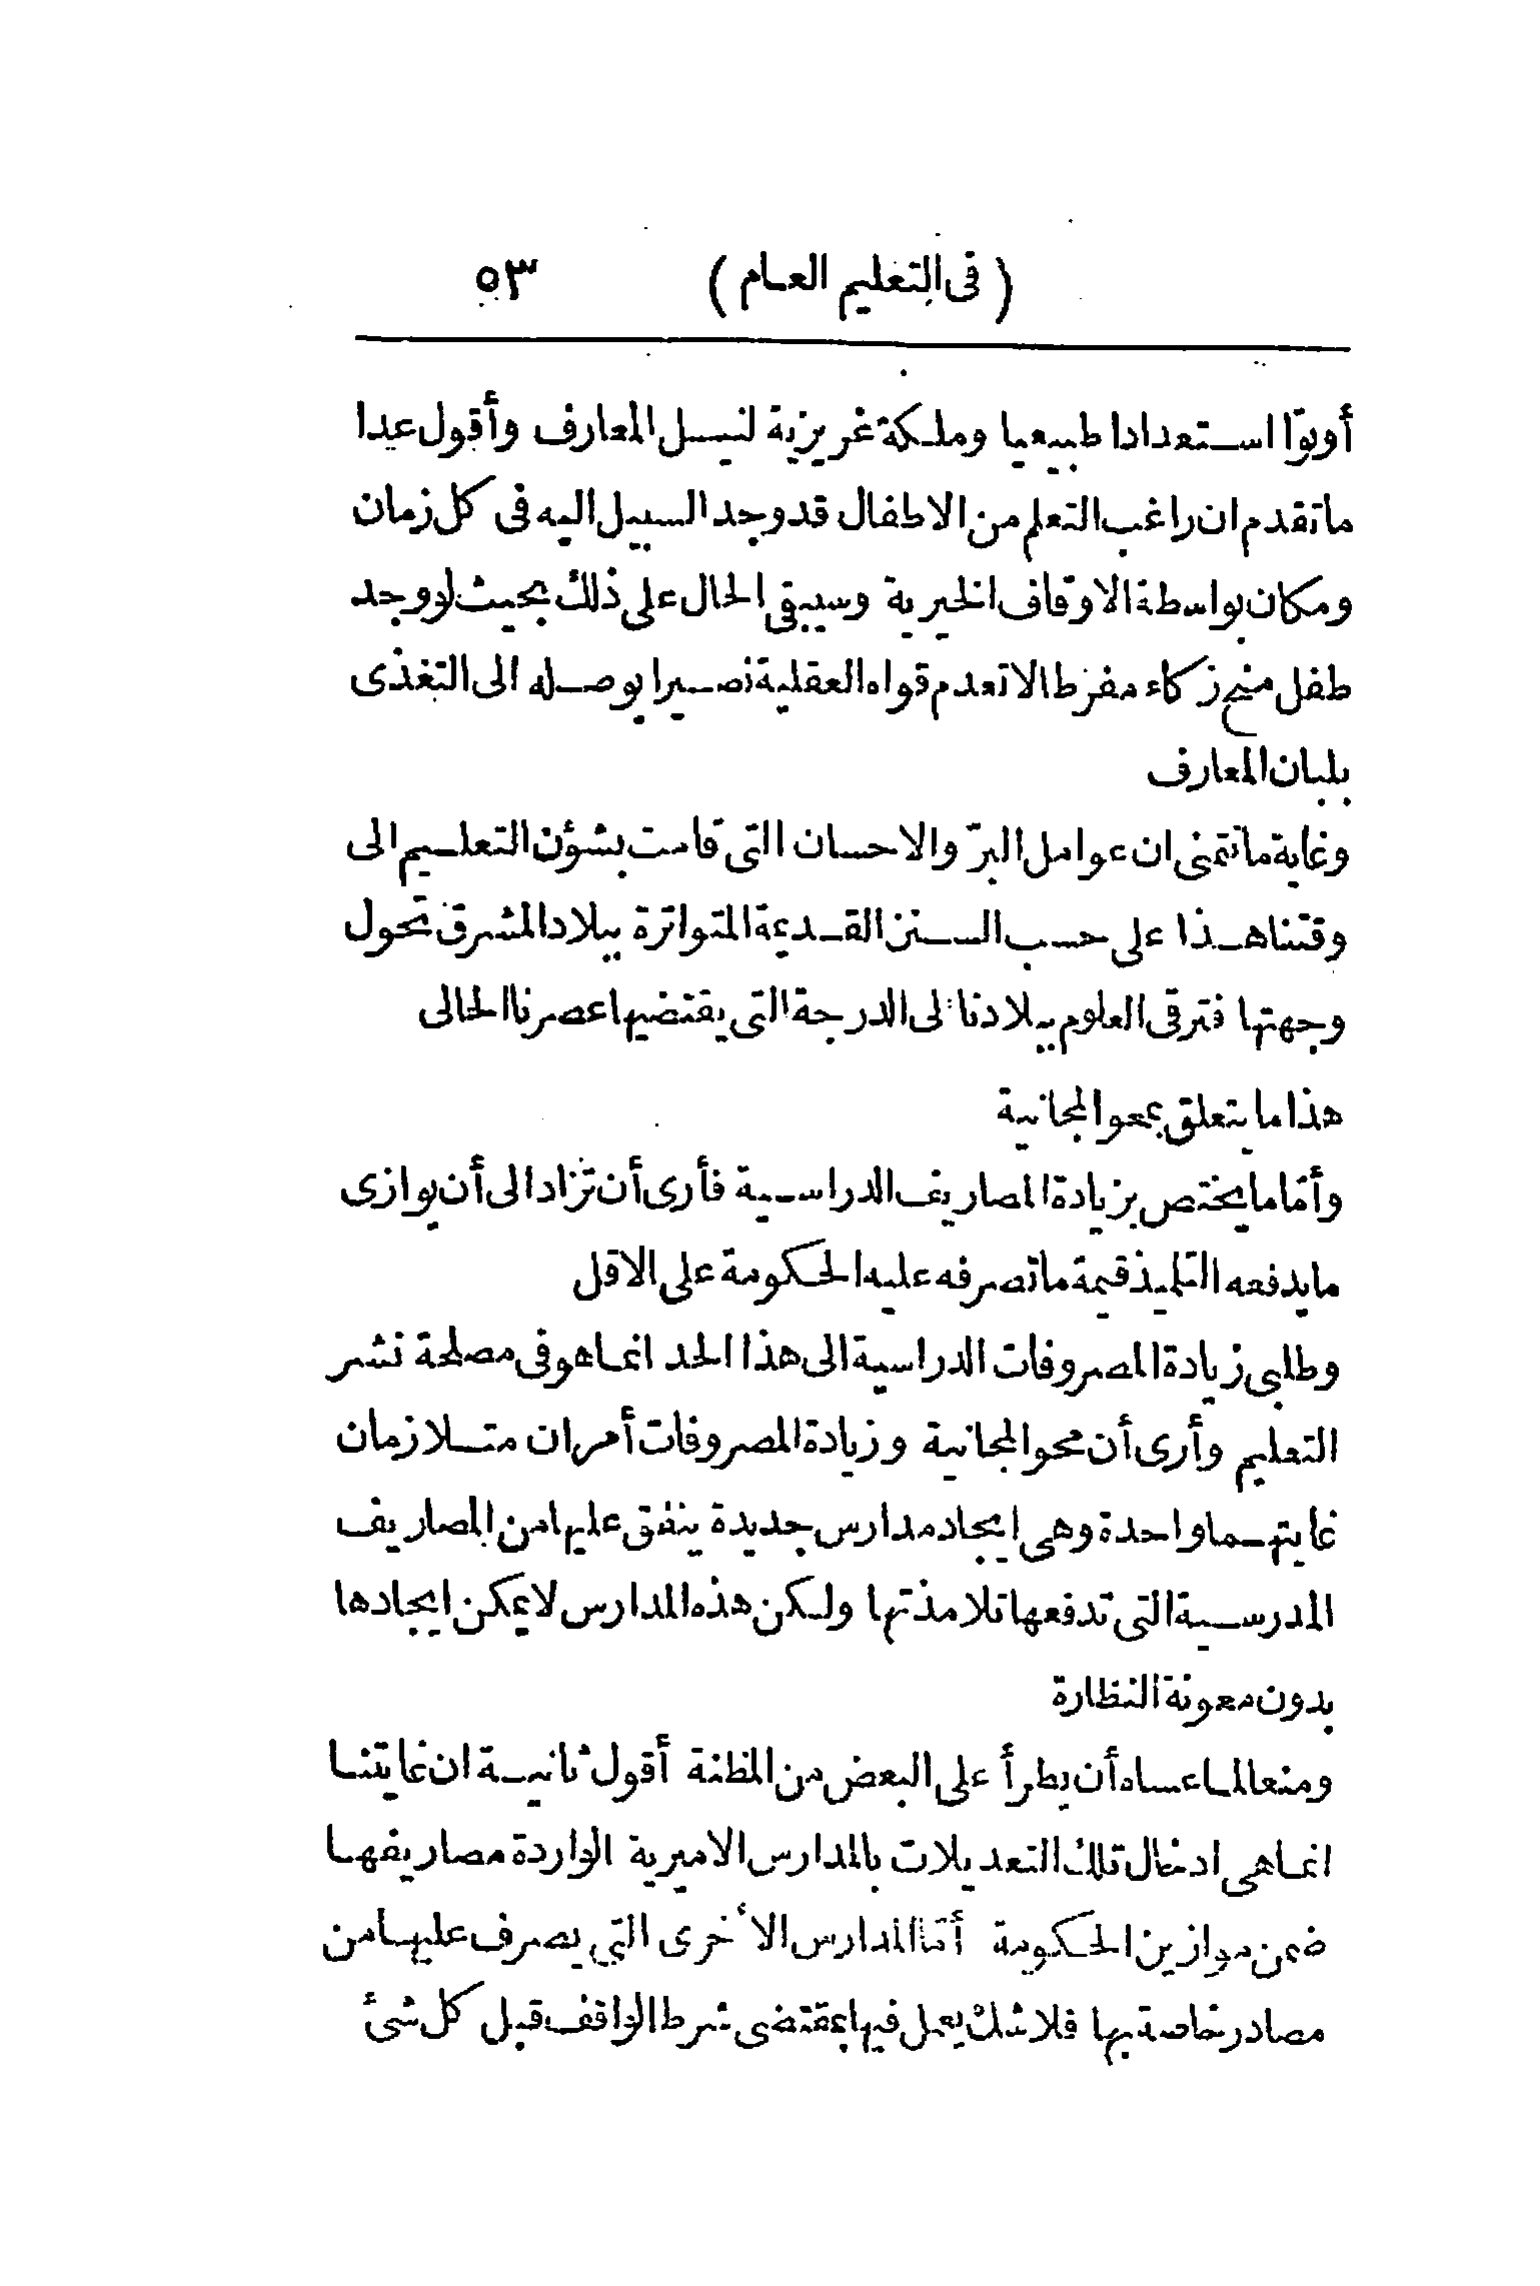 ( فى التعليم العام ) ٥٣
أوتوا استعدادا طبيعيا وملكة غريزية لنيل المعارف وأقول عدا
ما تقدم ان راغب التعلم من الاطفال قد وجد السبيل اليه فى كل زمان
ومكان بواسطة الاوقاف الخيرية وسيبقى الحال على ذلك بحيث لو وجد
طفل منح زكاء مفرطا لا تعدم قواه العقلية نصيرا يوصله الى التغذى
بلبان المعارف
وغاية ما نتمنى ان عوامل البرّ والاحسان التى قامت بشؤن التعليم الى
وقتنا هذا على حسب السنن القديمة المتواترة ببلاد المشرق تحول
وجهتها فترقى العلوم ببلادنا الى الدرجة التى يقتضيها عصرنا الحالى
هذا ما يتعلق بمحو المجانية
وأمّا ما يختص بزيادة المصاريف الدراسية فأرى أن تزاد الى أن يوازى
ما يدفعه التلميذ قيمة ما تصرفه عليه الحكومة على الاقل
وطلبى زيادة المصروفات الدراسية الى هذا الحد انما هو فى مصلحة نشر
التعليم وأرى أن محو المجانية وزيادة المصروفات أمران متلازمان
غايتهما واحدة وهى ايجاد مدارس جديدة ينفق عليها من المصاريف
المدرسية التى تدفعها تلامذتها ولكن هذه المدارس لا يمكن ايجادها
بدون معونة النظارة
ومنعا لما عساه أن يطرأ على البعض من المظنة أقول ثانية ان غايتنا
انما هى ادخال تلك التعديلات بالمدارس الاميرية الواردة مصاريفها
ضمن موازين الحكومة أمّا المدارس الأخرى التى يصرف عليها من
مصادر خاصة بها فلا شك يعمل فيها بمقتضى شرط الواقف قبل كل شئ